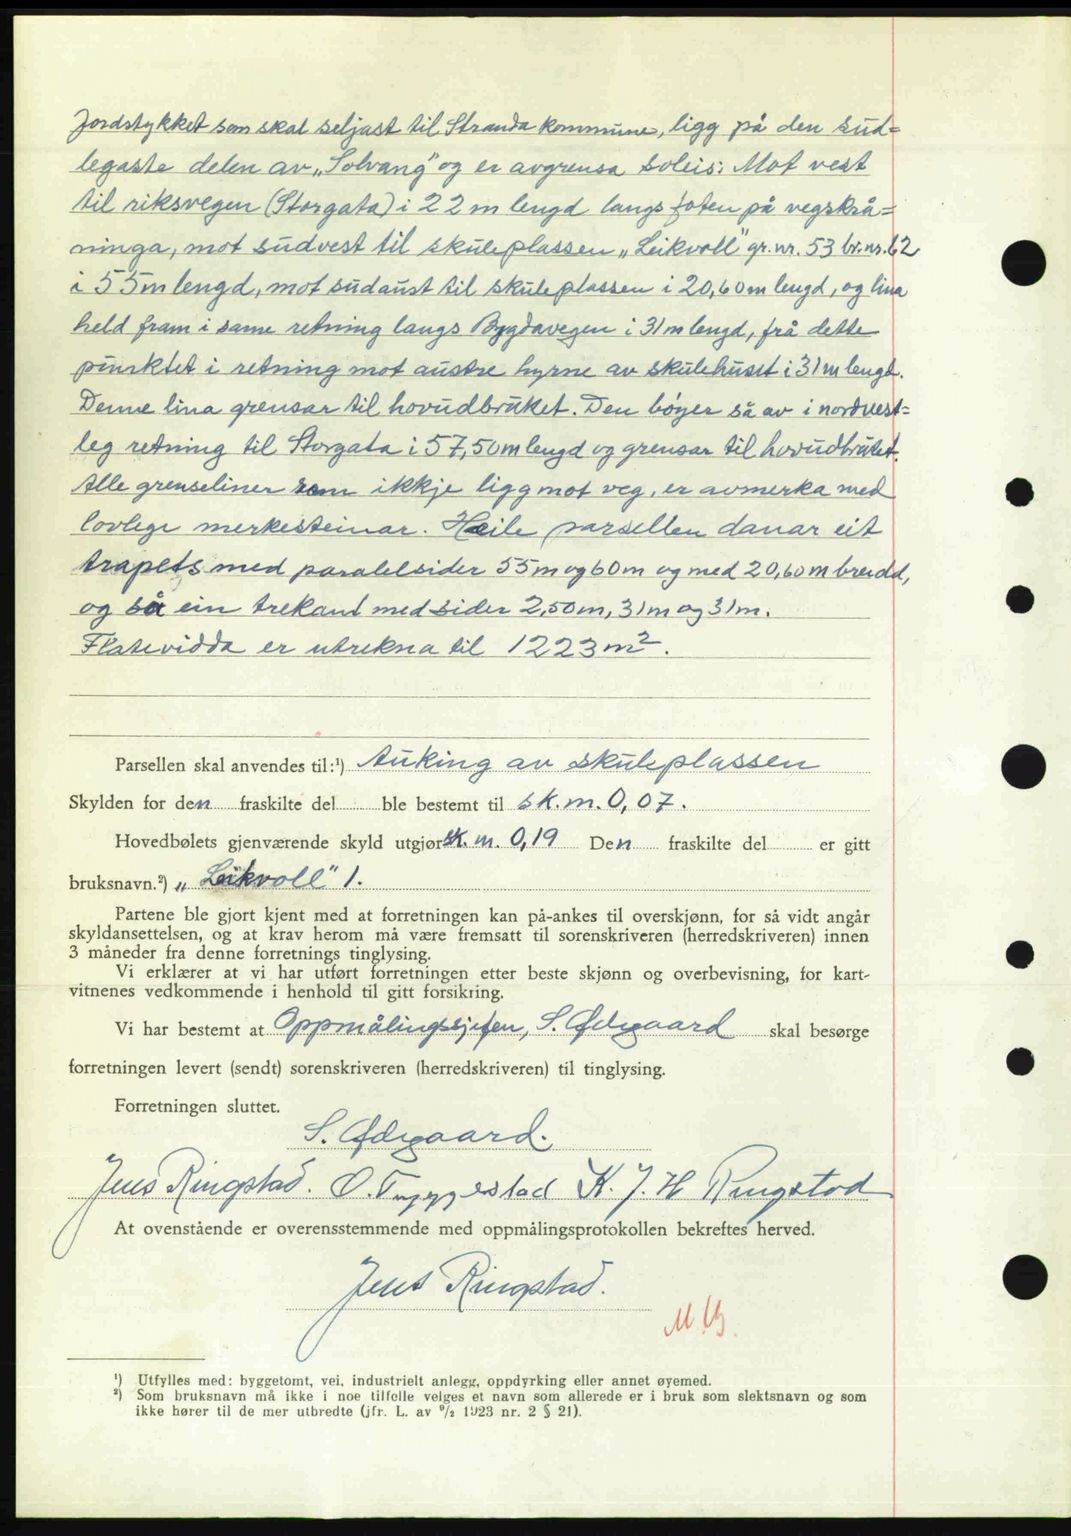 Jordstykket som skal seljast til Stranda kommune, ligg på den sud=
legaste delen av „Solvang" og er avgrensa soleis: Mot vest
til riksvegen (Storgata) i 22 m lengd langs foten på vegskrå=
ninga, mot sudvest til skuleplassen „Leikvoll" gr.nr. 53 br.nr. 62
i 55 m lengd, mot sudaust til skuleplassen i 20,60 m lengd, og lina
held fram i same retning langs Bygdavegen i 31 m lengd, frå dette
punktet i retning mot austre hyrne av skulehuset i 31 m lengd.
Denne lina grensar til hovudbruket. Den bøyer så av i nordvest=
leg retning til Storgata i 57,50 m lengd og grensar til hovudbruket.
Alle grenseliner som ikkje ligg mot veg, er avmerka med
lovlege merkesteinar. Heile parsellen danar eit
trapets med paralelsider 55 m og 60 m og med 20,60 m breidd,
og så ein trekant med sider 2,50 m, 31 m og 31 m.
Flatevidda er utrekna til 1223 m².
Parsellen skal anvendes til:¹) Auking av skuleplassen
Skylden for den fraskilte del ble bestemt til sk.m. 0,07.
Hovedbølets gjenværende skyld utgjør sk. m. 0,19 Den fraskilte del er gitt
bruksnavn.²) „Leikvoll" 1.
Partene ble gjort kjent med at forretningen kan på-ankes til overskjønn, for så vidt angår
skyldansettelsen, og at krav herom må være fremsatt til sorenskriveren (herredskriveren) innen
3 måneder fra denne forretnings tinglysing.
Vi erklærer at vi har utført forretningen etter beste skjønn og overbevisning, for kart-
vitnenes vedkommende i henhold til gitt forsikring.
Vi har bestemt at Oppmålingssjefen, S. Ødegaard skal besørge
forretningen levert (sendt) sorenskriveren (herredskriveren) til tinglysing.
Forretningen sluttet.
S. Ødegaard.
Jens Ringstad. O. Tryggestad K. J. H Ringstad
At ovenstående er overensstemmende med oppmålingsprotokollen bekreftes herved.
Jens Ringstad.
¹) Utfylles med: byggetomt, vei, industrielt anlegg, oppdyrking eller annet øyemed.
²) Som bruksnavn må ikke i noe tilfelle velges et navn som allerede er i bruk som slektsnavn og som
ikke hører til de mer utbredte (jfr. L. av ⁹/₂ 1923 nr. 2 § 21).